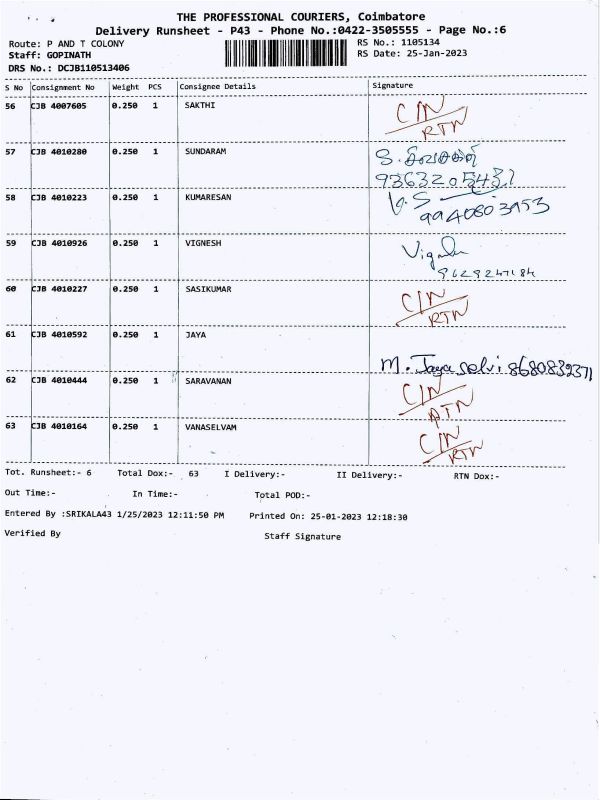 THE PROFESSIONAL COURIERS, Coimbatore
Delivery Runsheet - P43 - Phone No.:0422-3505555 - Page No.:6
Route: P AND T COLONY
RS No.: 1105134
Staff: GOPINATH
RS Date: 25-Jan-2023
DRS No.: DCJB110513406
S No Consignment No Weight PCS Consignee Details Signature
56 CJB 4007605 0.250 1 SAKTHI C/N
RTN
57 CJB 4010280 0.250 1 SUNDARAM S.
9363205431
58 CJB 4010223 0.250 1 KUMARESAN V.S
9940803953
59 CJB 4010926 0.250 1 VIGNESH
9629247184
60 CJB 4010227 0.250 1 SASIKUMAR C/N
RTN
61 CJB 4010592 0.250 1 JAYA
M. Jayaselvi 8680832371
62 CJB 4010444 0.250 1 SARAVANAN C/N
RTN
63 CJB 4010164 0.250 1 VANASELVAM C/N
RTN
Tot. Runsheet:- 6 Total Dox:- 63 I Delivery:- II Delivery:- RTN Dox:-
Out Time:- In Time:- Total POD:-
Entered By :SRIKALA43 1/25/2023 12:11:50 PM Printed On: 25-01-2023 12:18:30
Verified By Staff Signature